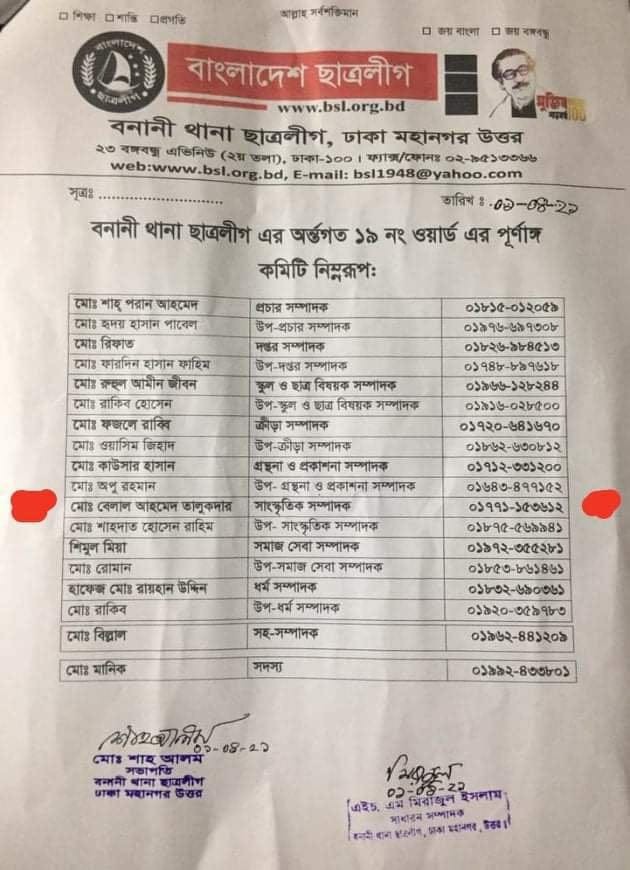 □ শিক্ষা □ শান্তি □প্রগতি
আল্লাহ সর্বশক্তিমান
□ জয় বাংলা □ জয় বঙ্গবন্ধু
বাংলাদেশ
ছাত্রলীগ
বাংলাদেশ ছাত্রলীগ
www.bsl.org.bd
মুজিব
100
বনানী থানা ছাত্রলীগ, ঢাকা মহানগর উত্তর
২৩ বঙ্গবন্ধু এভিনিউ (২য় তলা), ঢাকা-১০০ । ফ্যাক্স/ফোনঃ ০২-৯৫১৩৩৬৬
web:www.bsl.org.bd, E-mail: bsl1948@yahoo.com
সূত্রঃ ..............................
তারিখ : ০১-০৪-২১
বনানী থানা ছাত্রলীগ এর অর্ন্তগত ১৯ নং ওয়ার্ড এর পূর্ণাঙ্গ
কমিটি নিম্নরূপ:
মোঃ শাহ্ পরান আহমেদ প্রচার সম্পাদক ০১৮১৫-০১২০৫৯
মোঃ হৃদয় হাসান পাবেল উপ-প্রচার সম্পাদক ০১৯৭৬-৬৯৭৩০৮
মোঃ রিফাত দপ্তর সম্পাদক ০১৮২৬-৯৮৪৫১৩
মোঃ ফারদিন হাসান ফাহিম উপ-দপ্তর সম্পাদক ০১৭৪৮-৮৯৭৬১৮
মোঃ রুহুল আমীন জীবন স্কুল ও ছাত্র বিষয়ক সম্পাদক ০১৯৬৬-১২৮২৪৪
মোঃ রাকিব হোসেন উপ-স্কুল ও ছাত্র বিষয়ক সম্পাদক ০১৯১৬-০২৮৫০০
মোঃ ফজলে রাব্বি ক্রীড়া সম্পাদক ০১৭২০-৬৪১৬৭০
মোঃ ওয়াসিম জিহাদ উপ-ক্রীড়া সম্পাদক ০১৮৬২-৬৩০৮১২
মোঃ কাউসার হাসান গ্রন্থনা ও প্রকাশনা সম্পাদক ০১৭১২-৩৩১২০০
মোঃ অপু রহমান উপ- গ্রন্থনা ও প্রকাশনা সম্পাদক ০১৬৪৩-৪৭৭১৫২
মোঃ বেলাল আহমেদ তালুকদার সাংস্কৃতিক সম্পাদক ০১৭৭১-১৫৩৬১২
মোঃ শাহদাত হোসেন রাহিম উপ- সাংস্কৃতিক সম্পাদক ০১৮৭৫-৫৬৯৯৪১
শিমুল মিয়া সমাজ সেবা সম্পাদক ০১৯৭২-৩৫৫২৮১
মোঃ রোমান উপ-সমাজ সেবা সম্পাদক ০১৮৫৩-৮৬১৪৬১
হাফেজ মোঃ রায়হান উদ্দিন ধর্ম সম্পাদক ০১৮৩২-৬৯০৩৬১
মোঃ রাকিব উপ-ধর্ম সম্পাদক ০১৯২০-৩৫৯৭৮৩
মোঃ বিল্লাল সহ-সম্পাদক ০১৯৬২-৪৪১২০৯
মোঃ মানিক সদস্য ০১৯৯২-৪৩৩৮০১
০১-০৪-২১
মোঃ শাহ আলম
সভাপতি
বনানী থানা ছাত্রলীগ
ঢাকা মহানগর উত্তর
০১-০৪-২১
এইচ. এম মিরাজুল ইসলাম
সাধারন সম্পাদক
বনানী থানা ছাত্রলীগ, ঢাকা মহানগর, উত্তর।